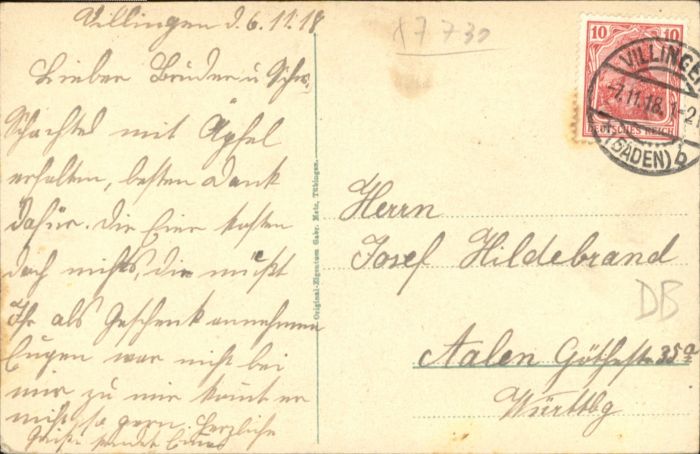 Villingen d. 6.11.18
Lieber Bruder u. Schw.
Schachtel mit Äpfel
erhalten, besten Dank
dafür. Die Eier kosten
doch nichts, die müßt
Ihr als Geschenk annehmen
Eugen war nicht bei
mir zu mir kommt er
nicht so gern. Herzliche
Grüße sendet Eure
Original-Eigentum Gebr. Metz, Tübingen.
x7730
10 10
DEUTSCHES REICH
VILLINGE
-7.11.18. 1-2
(BADEN) b
Herrn
Josef Hildebrand
DB
Aalen Götheste 35a
Württbg